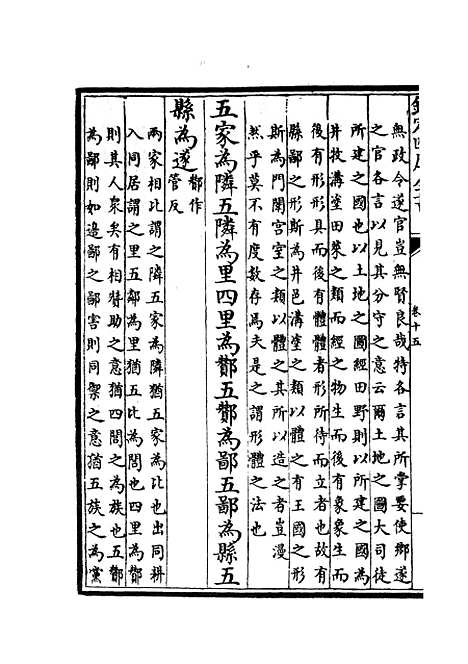 欽定四庫全書
卷十五
無政令遂官豈無賢良哉特各言其所掌要使鄉遂
之官各言以見其分守之意云爾土地之圖大司徒
所建之國也以土地之圖經田野則以所建之國為
井牧溝塗田萊之類而經之物生而後有象象生而
後有形形具而後有體體者形所待而立者也故有
縣鄙之形斯為井邑溝塗之類以體之有王國之形
斯為門闈宫室之類以體之其所以造之者豈漫
然乎莫不有度數存焉夫是之謂形體之法也
五家為隣五隣為里四里為酇五酇為鄙五鄙為縣五
縣為遂酇作管反
兩家相比謂之隣五家為隣猶五家為比也出同耕
入同居謂之里五鄰為里猶五比為閭也四里為酇
則其人衆矣有相贊助之意猶四閭之為族也五酇
為鄙則如邉鄙之鄙害則同禦之意猶五族之為黨